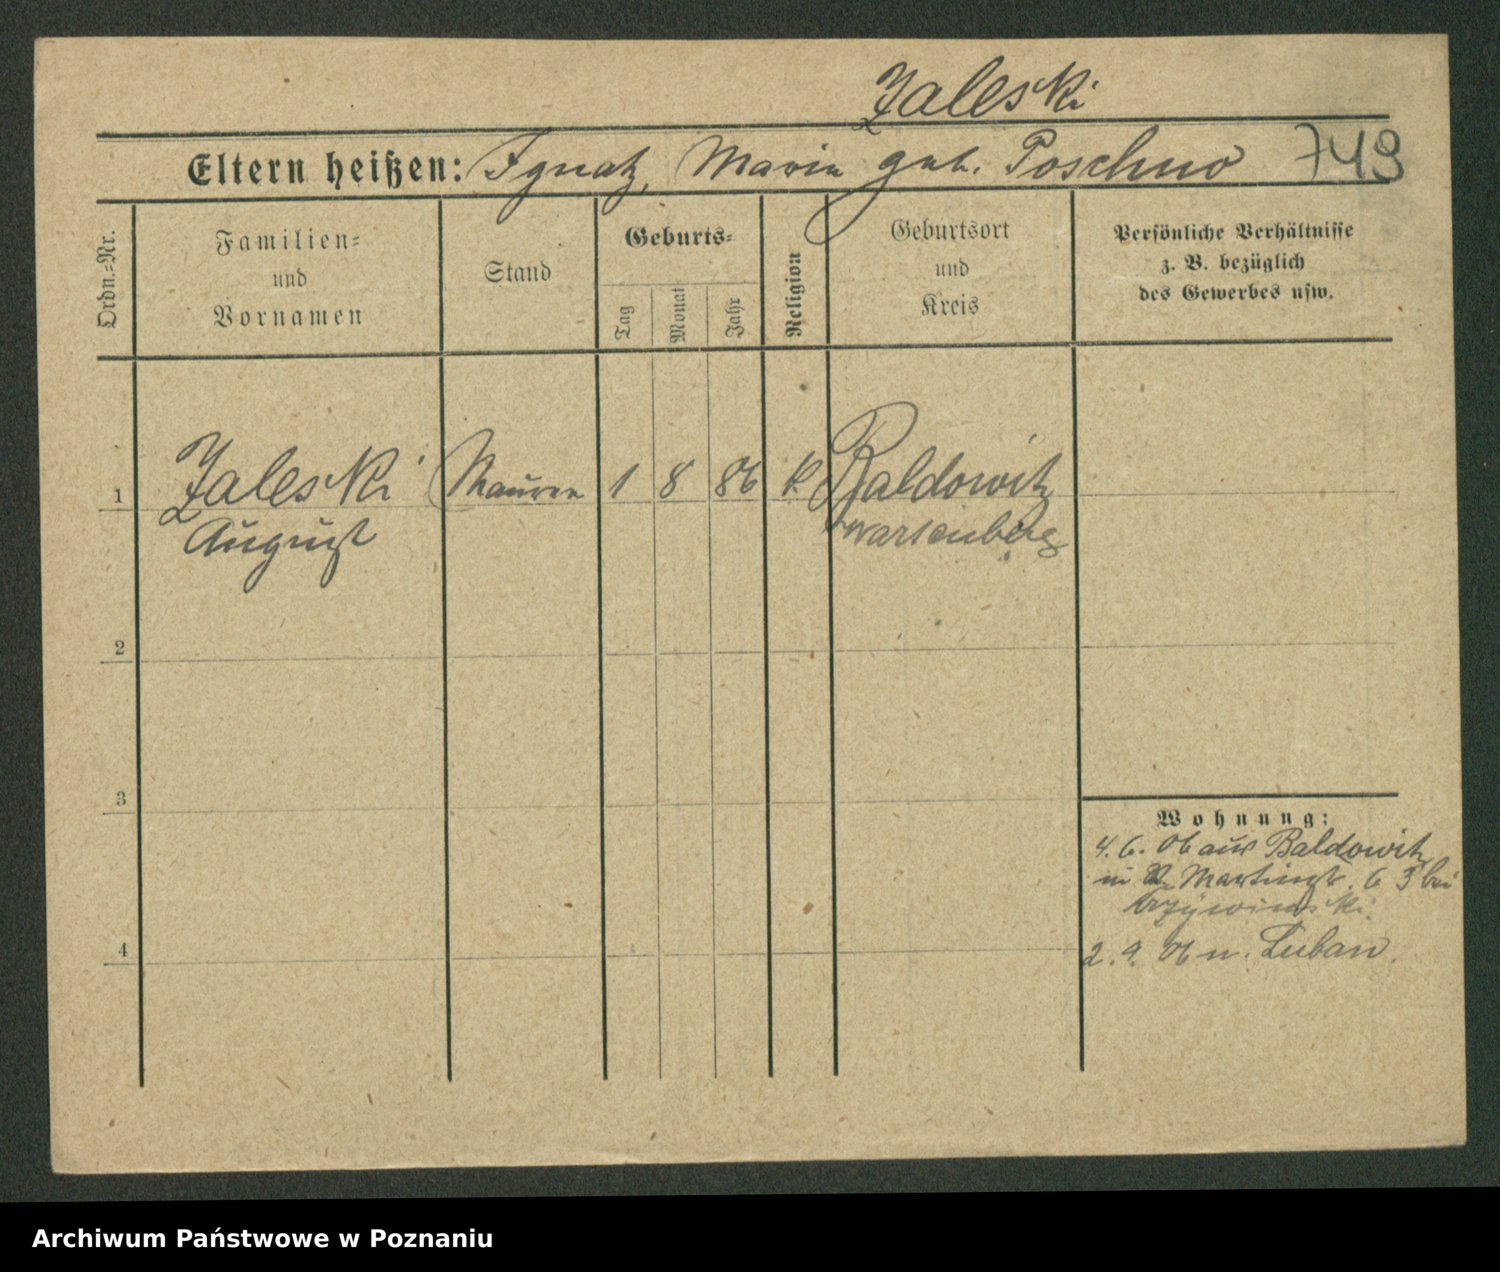 Zaleski
Eltern heißen: Ignatz, Marie geb. Poschno 749
Ordn.-Nr.
Familien-
und
Vornamen
Stand
Geburts-
Tag
Monat
Jahr
Religion
Geburtsort
und
Kreis
Persönliche Verhältnisse
z. B. bezüglich
des Gewerbes usw.
1 Zaleski Maurer 1 8 86 k Baldowitz
August Wartenberg
2
3
4
Wohnung:
4. 6. 06 aus Baldowitz
in Martinstr. 63 bei
2. 9. 06 n. Luban.
Archiwum Państwowe w Poznaniu